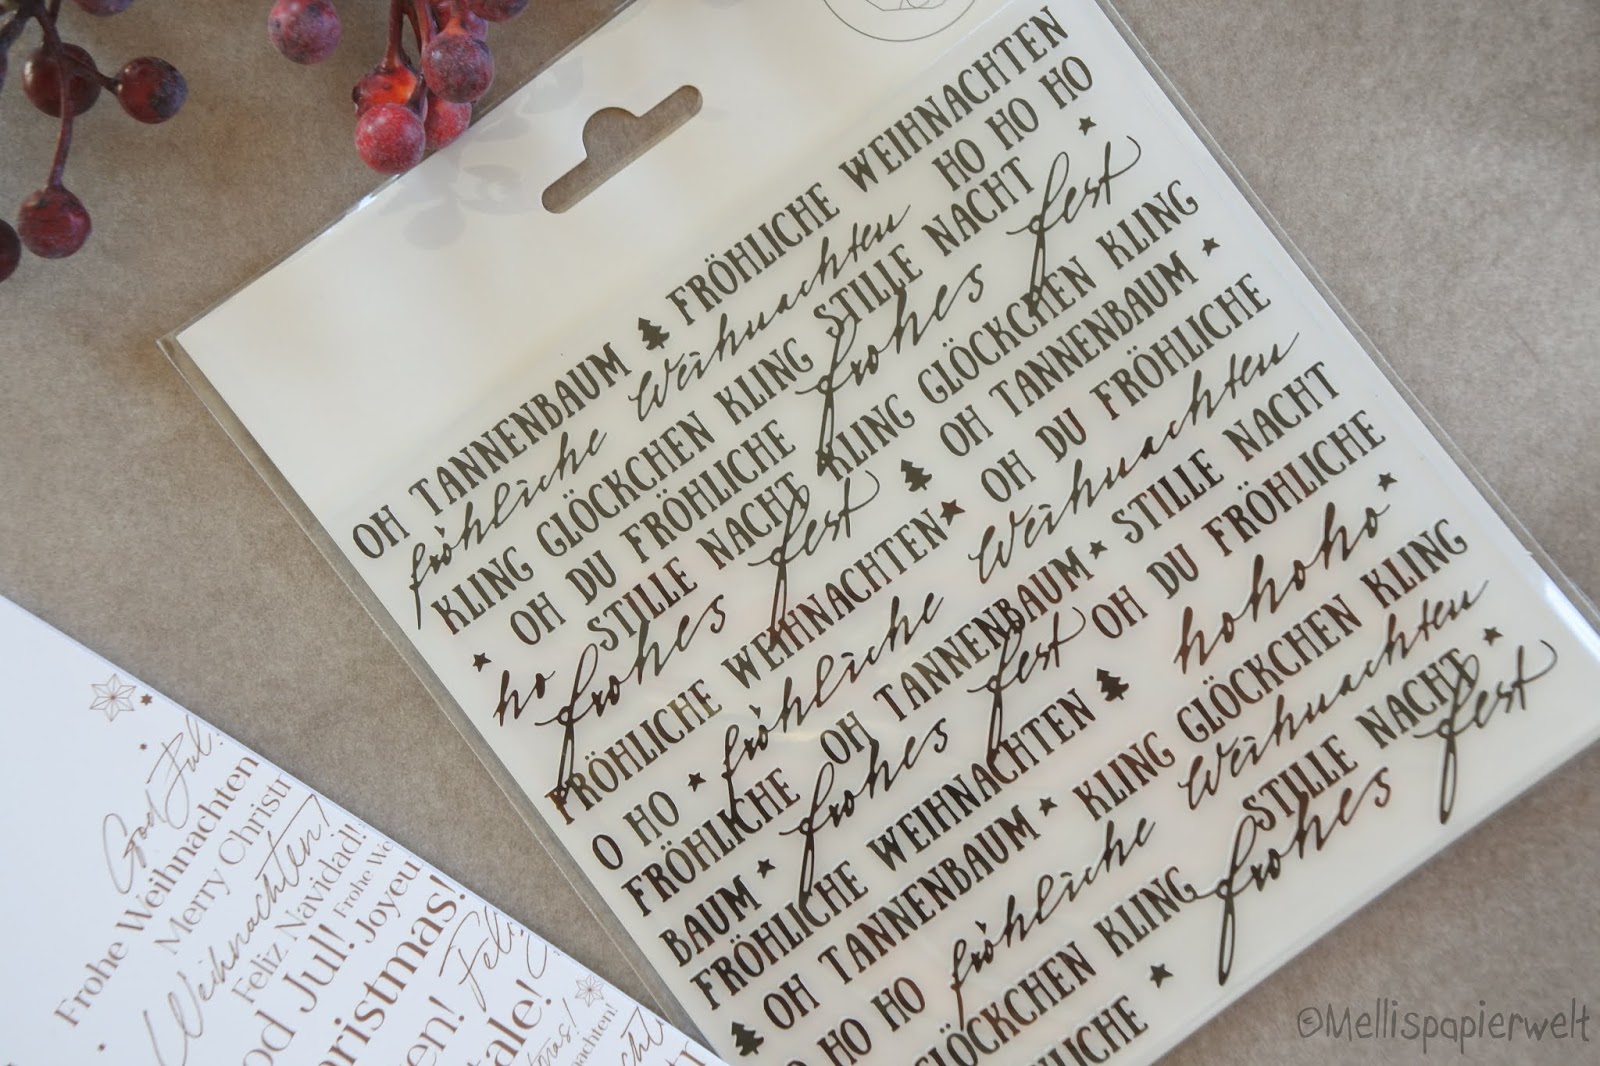 OH TANNENBAUM FRÖHLICHE WEIHNACHTEN
fröhliche Weihnachten HO HO HO
KLING GLÖCKCHEN KLING STILLE NACHT
OH DU FRÖHLICHE frohes fest
STILLE NACHT KLING GLÖCKCHEN KLING
ho frohes fest OH TANNENBAUM
FRÖHLICHE WEIHNACHTEN OH DU FRÖHLICHE
O HO fröhliche Weihnachten
FRÖHLICHE OH TANNENBAUM STILLE NACHT
BAUM frohes fest OH DU FRÖHLICHE
FRÖHLICHE WEIHNACHTEN hohoho
OH TANNENBAUM KLING GLÖCKCHEN KLING
HO HO fröhliche Weihnachten
GLÖCKCHEN KLING STILLE NACHT
frohes fest
God Jul!
Frohe Weihnachten
Merry Christ
Weihnachten!
Feliz Navidad! Frohe We
od Jul! Joyeu
ristmas!
en! Feli
tale!
achten!
©Mellispapierwelt